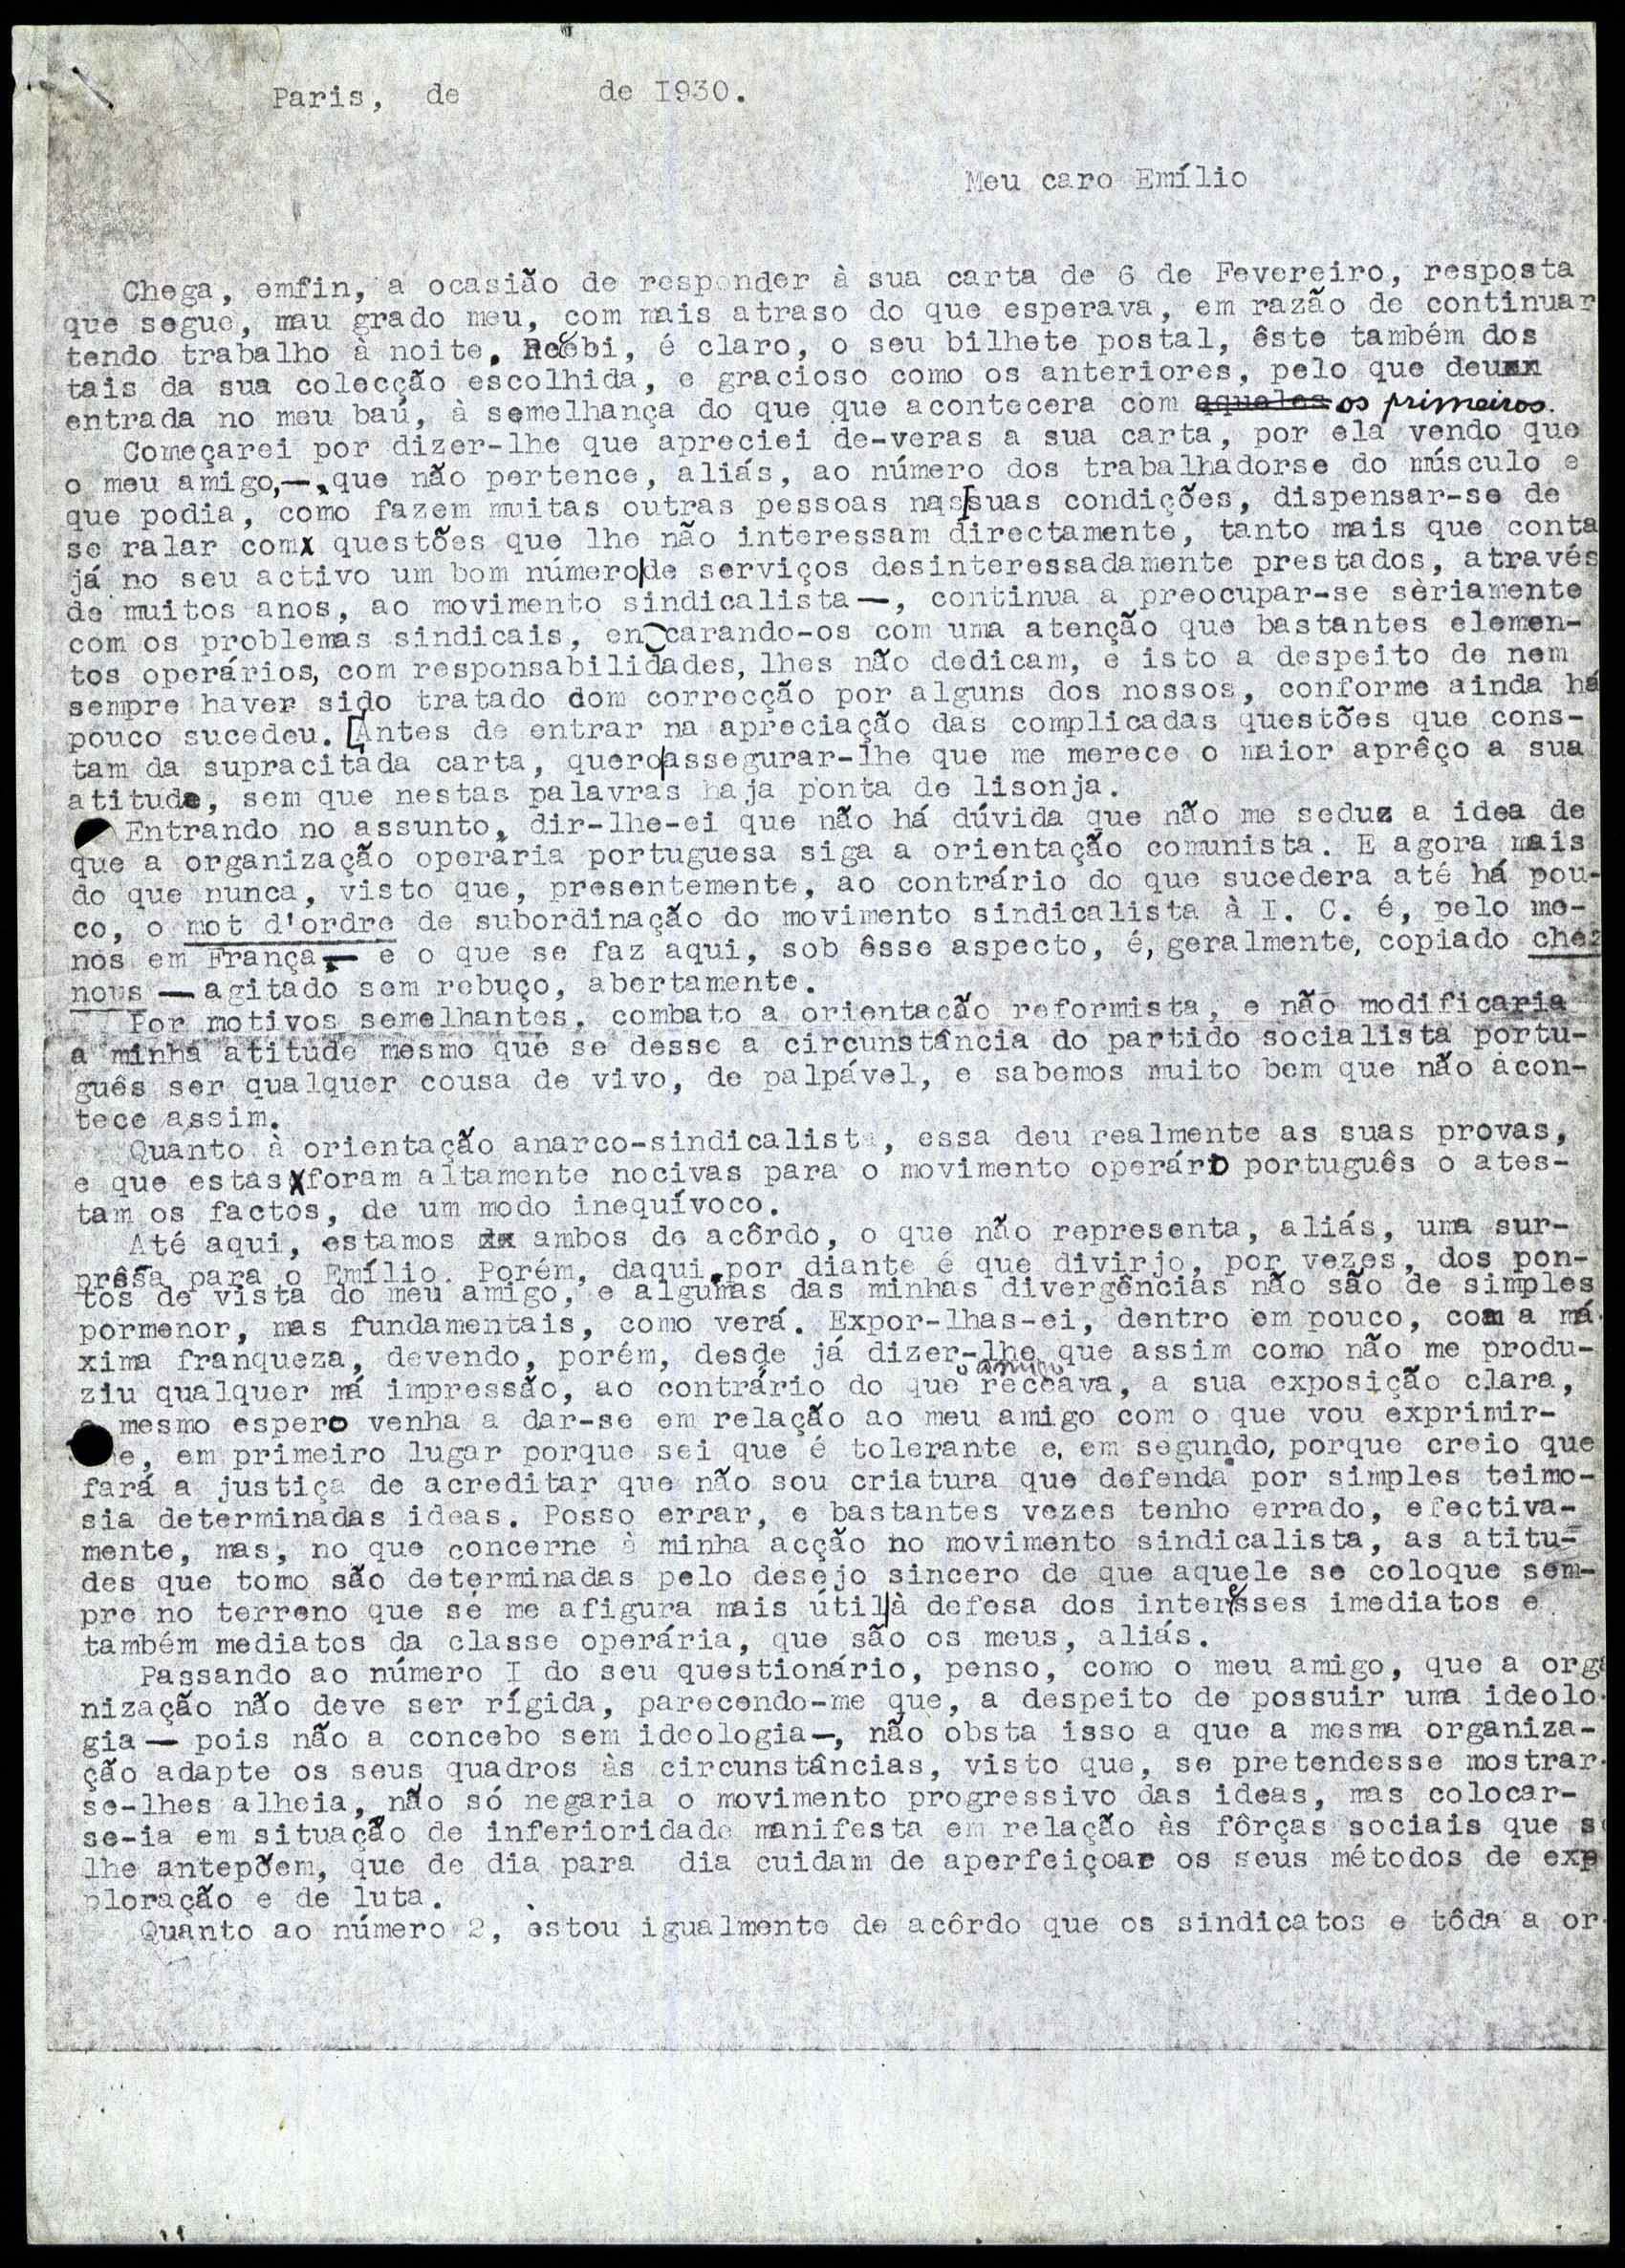 Paris, de de I930.
Meu caro Emílio
Chega, emfin, a ocasião de responder à sua carta de 6 de Fevereiro, resposta
que segue, mau grado meu, com mais atraso do que esperava, em razão de continuar
tendo trabalho à noite. Recebi, é claro, o seu bilhete postal, êste também dos
tais da sua colecção escolhida, e gracioso como os anteriores, pelo que deu
entrada no meu baú, à semelhança do que que acontecera com aqueles os primeiros.
Começarei por dizer-lhe que apreciei de-veras a sua carta, por ela vendo que
o meu amigo,—, que não pertence, aliás, ao número dos trabalhadorse do músculo e
que podia, como fazem muitas outras pessoas nas suas condições, dispensar-se de
se ralar com questões que lhe não interessam directamente, tanto mais que conta
já no seu activo um bom número de serviços desinteressadamente prestados, através
de muitos anos, ao movimento sindicalista—, continua a preocupar-se sèriamente
com os problemas sindicais, encarando-os com uma atenção que bastantes elemen-
tos operários, com responsabilidades, lhes não dedicam, e isto a despeito de nem
sempre haver sido tratado dom correcção por alguns dos nossos, conforme ainda há
pouco sucedeu. [Antes de entrar na apreciação das complicadas questões que cons-
tam da supracitada carta, quero assegurar-lhe que me merece o maior aprêço a sua
atitude, sem que nestas palavras haja ponta de lisonja.
Entrando no assunto, dir-lhe-ei que não há dúvida que não me seduz a idea de
que a organização operária portuguesa siga a orientação comunista. E agora mais
do que nunca, visto que, presentemente, ao contrário do que sucedera até há pou-
co, o mot d'ordre de subordinação do movimento sindicalista à I. C. é, pelo me-
nos em França — e o que se faz aqui, sob êsse aspecto, é, geralmente, copiado chez
nous — agitado sem rebuço, abertamente.
Por motivos semelhantes, combato a orientação reformista, e não modificaria
a minha atitude mesmo que se desse a circunstância do partido socialista portu-
guês ser qualquer cousa de vivo, de palpável, e sabemos muito bem que não acon-
tece assim.
Quanto à orientação anarco-sindicalista, essa deu realmente as suas provas,
e que estas foram altamente nocivas para o movimento operáro português o ates-
tam os factos, de um modo inequívoco.
Até aqui, estamos ambos de acôrdo, o que não representa, aliás, uma sur-
prêsa para o Emílio. Porém, daqui por diante é que divirjo, por vezes, dos pon-
tos de vista do meu amigo, e algumas das minhas divergências não são de simples
pormenor, mas fundamentais, como verá. Expor-lhas-ei, dentro em pouco, com a má-
xima franqueza, devendo, porém, desde já dizer-lhe que assim como não me produ-
ziu qualquer má impressão, ao contrário do que o amigo receava, a sua exposição clara,
o mesmo espero venha a dar-se em relação ao meu amigo com o que vou exprimir-
lhe, em primeiro lugar porque sei que é tolerante e, em segundo, porque creio que
fará a justiça de acreditar que não sou criatura que defenda por simples teimo-
sia determinadas ideas. Posso errar, e bastantes vezes tenho errado, efectiva-
mente, mas, no que concerne à minha acção no movimento sindicalista, as atitu-
des que tomo são determinadas pelo desejo sincero de que aquele se coloque sem-
pre no terreno que se me afigura mais útil à defesa dos interesses imediatos e
também mediatos da classe operária, que são os meus, aliás.
Passando ao número I do seu questionário, penso, como o meu amigo, que a orga
nização não deve ser rígida, parecendo-me que, a despeito de possuir uma ideolo-
gia — pois não a concebo sem ideologia—, não obsta isso a que a mesma organiza-
ção adapte os seus quadros às circunstâncias, visto que, se pretendesse mostrar-
se-lhes alheia, não só negaria o movimento progressivo das ideas, mas colocar-
se-ia em situação de inferioridade manifesta em relação às fôrças sociais que se
lhe antepõem, que de dia para dia cuidam de aperfeiçoar os seus métodos de exp
ploração e de luta.
Quanto ao número 2, estou igualmente de acôrdo que os sindicatos e tôda a or-